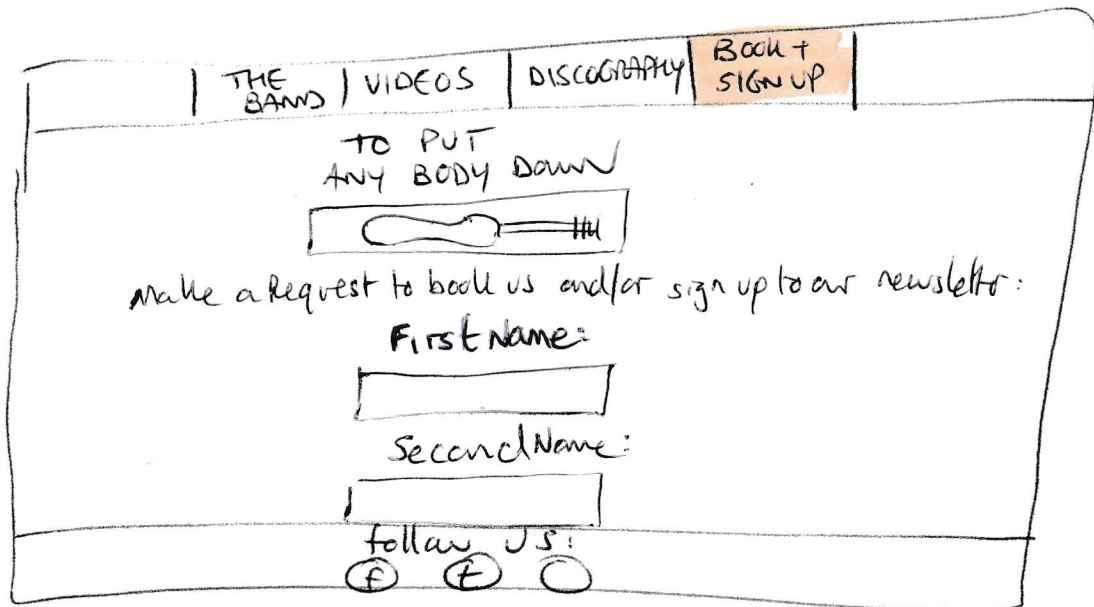 THE
BAND
VIDEOS
DISCOGRAPHY
BOOK +
SIGN UP
TO PUT
ANY BODY DOWN
Make a Request to book us and/or sign up to our newsletter:
First Name:
Second Name:
follow us:
f t